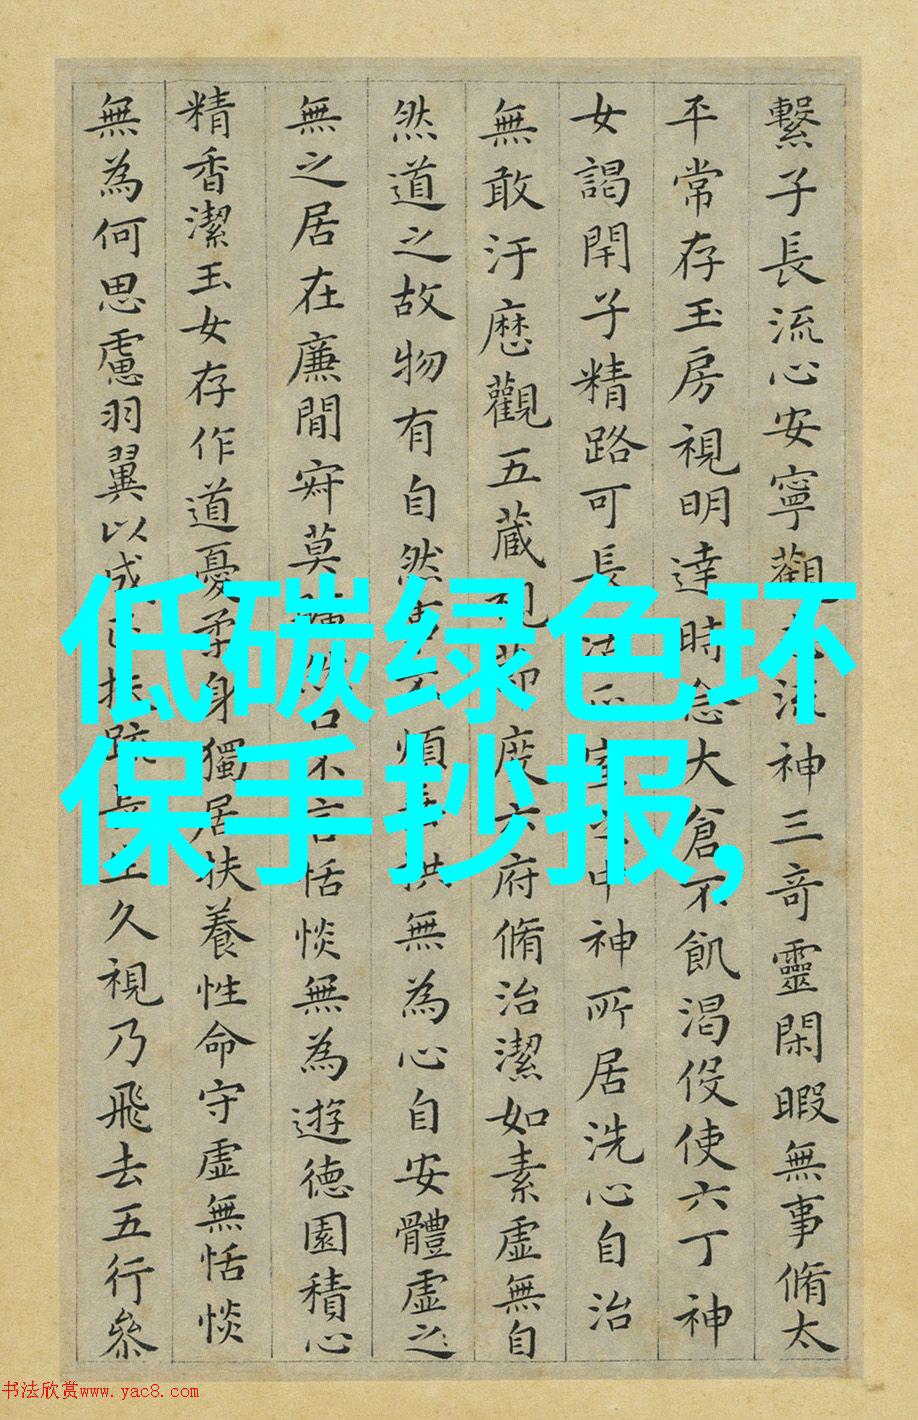 繫子長流心安寧觀流神三奇靈閑暇無事脩太
平常存玉房視明達時念大倉不飢渴伇使六丁神
女謁閇子精路可長室中神所居洗心自治
無敢汙歷觀五藏視節度六府脩治潔如素虛無自
然道之故物有自然煩拱無為心自安體虛之
無之居在廉間寂莫口不言恬惔無為遊德園積心
精香潔玉女存作道憂柔身獨居扶養性命守虛無恬惔
無為何思慮羽翼以成扶疏生久視乃飛去五行參
低碳绿色环
保手抄报,
书法欣赏www.yac8.com